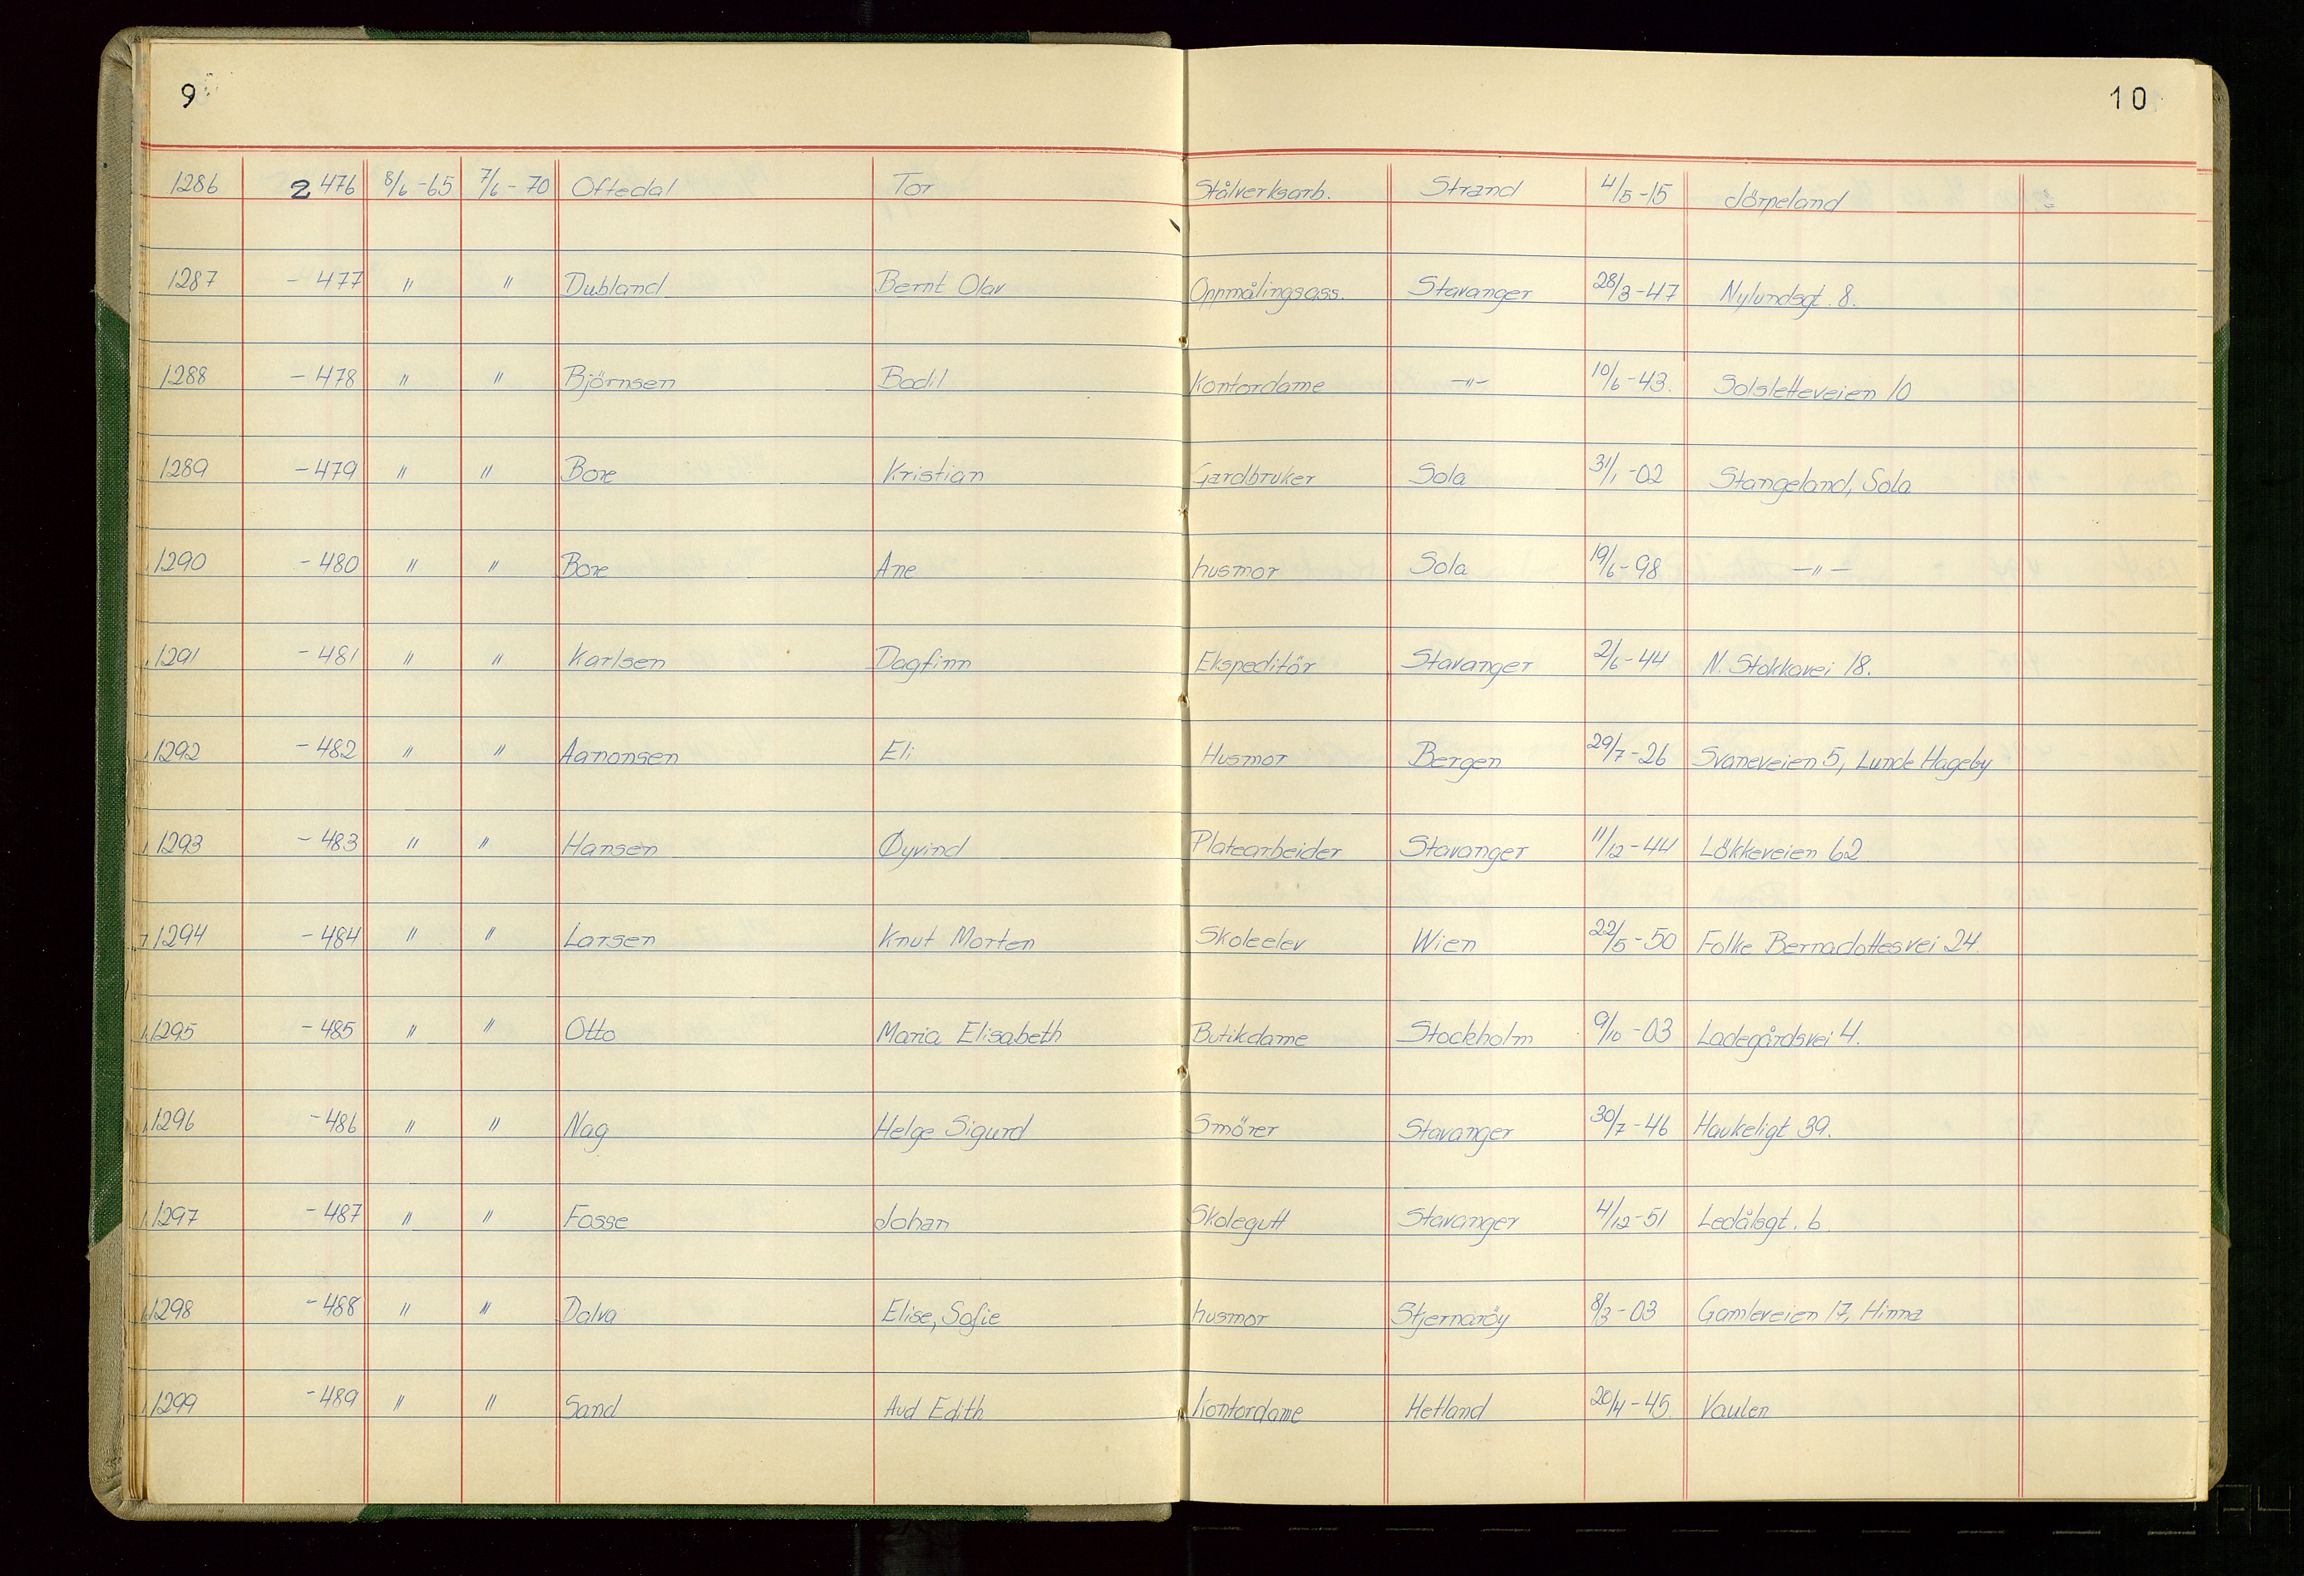 9
10
1286 2 476 8/6-65 7/6-70 Oftedal Tor Stålverksarb. Strand 4/5-15 Jörpeland
1287 -477 " " Dubland Bernt Olav Oppmålingsass. Stavanger 28/3-47 Nylundsgt. 8.
1288 -478 " " Björnsen Bodil Kontordame -"- 10/6-43. Solsletteveien 10
1289 -479 " " Bore Kristian Gardbruker Sola 31/1-02 Stangeland, Sola
1290 -480 " " Bore Ane husmor Sola 19/6-98 -"-
1291 -481 " " Karlsen Dagfinn Ekspeditör Stavanger 2/6-44 N. Stokkavei 18.
1292 -482 " " Aanonsen Eli Husmor Bergen 29/7-26 Svaneveien 5, Lunde Hageby
1293 -483 " " Hansen Øyvind Platearbeider Stavanger 11/12-44 Lökkeveien 62
1294 -484 " " Larsen Knut Morten Skoleelev Wien 22/5-50 Folke Bernadottesvei 24.
1295 -485 " " Otto Maria Elisabeth Butikdame Stockholm 9/10-03 Ladegårdsvei 4.
1296 -486 " " Nag Helge Sigurd Smörer Stavanger 30/7-46 Haukeligt 39.
1297 -487 " " Fosse Johan Skolegutt Stavanger 4/12-51 Ledålsgt. 6.
1298 -488 " " Dalva Elise, Sofie husmor Stjernaröy 8/3-03 Gamleveien 17, Hinna
1299 -489 " " Sand Aud Edith Kontordame Hetland 20/4-45. Vaulen